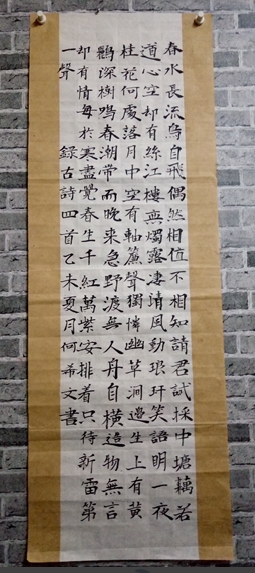 春水長流鳥自飛偶然相值不相知請君試採中塘藕若
道心空却有絲江樓無燭露凄清風動琅玕笑語明一夜
桂花何處落月中空有軸簾聲獨憐幽草澗邊生上有黃
鸝深樹鳴春潮帶雨晚來急野渡無人舟自橫造物無言
却有情每於寒盡覺春生千紅萬紫安排着只待新雷第
一聲 錄古詩四首乙未夏月何希文書